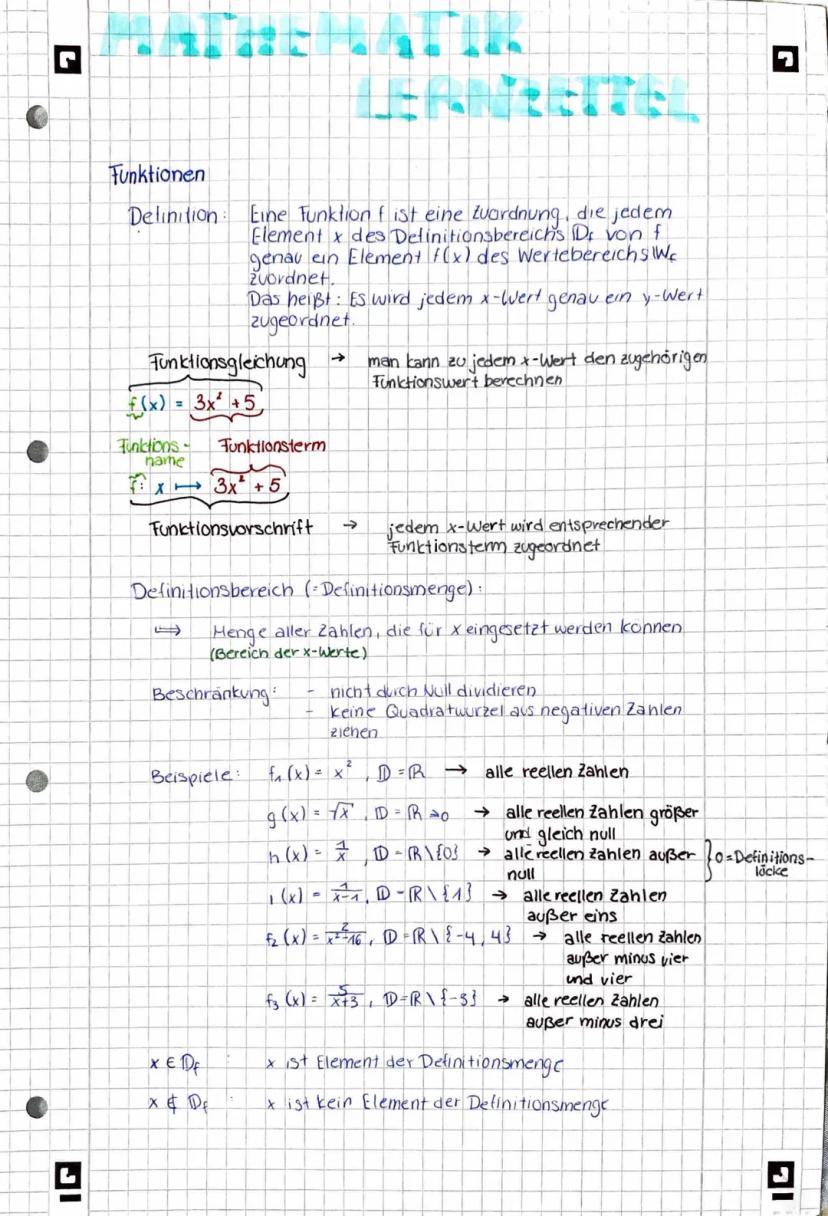 MATHEMATIK
LERNZETTEL
Funktionen
Definition: Eine Funktion f ist eine Zuordnung, die jedem
Element x des Definitionsbereichs 𝔻f von f
genau ein Element f(x) des Wertebereichs 𝕎f
zuordnet.
Das heißt: Es wird jedem x-Wert genau ein y-Wert
zugeordnet.
Funktionsgleichung → man kann zu jedem x-Wert den zugehörigen
Funktionswert berechnen
f(x) = 3x² + 5
Funktions- Funktionsterm
name
f: x ↦ 3x² + 5
Funktionsvorschrift → jedem x-Wert wird entsprechender
Funktionsterm zugeordnet
Definitionsbereich (=Definitionsmenge):
⟹ Menge aller Zahlen, die für x eingesetzt werden können
(Bereich der x-Werte)
Beschränkung: - nicht durch Null dividieren
- keine Quadratwurzel aus negativen Zahlen
ziehen
Beispiele: f₁(x) = x², 𝔻 = ℝ → alle reellen Zahlen
g(x) = √x, 𝔻 = ℝ ≥0 → alle reellen Zahlen größer
und gleich null
h(x) = 1/x, 𝔻 = ℝ\{0} → alle reellen Zahlen außer } 0 = Definitions-
null lücke
i(x) = 1/(x-1), 𝔻 = ℝ\{1} → alle reellen Zahlen
außer eins
f₂(x) = 2/(x²-16), 𝔻 = ℝ\{-4, 4} → alle reellen Zahlen
außer minus vier
und vier
f₃(x) = 5/(x+3), 𝔻 = ℝ\{-3} → alle reellen Zahlen
außer minus drei
x ∈ 𝔻f : x ist Element der Definitionsmenge
x ∉ 𝔻f : x ist kein Element der Definitionsmenge